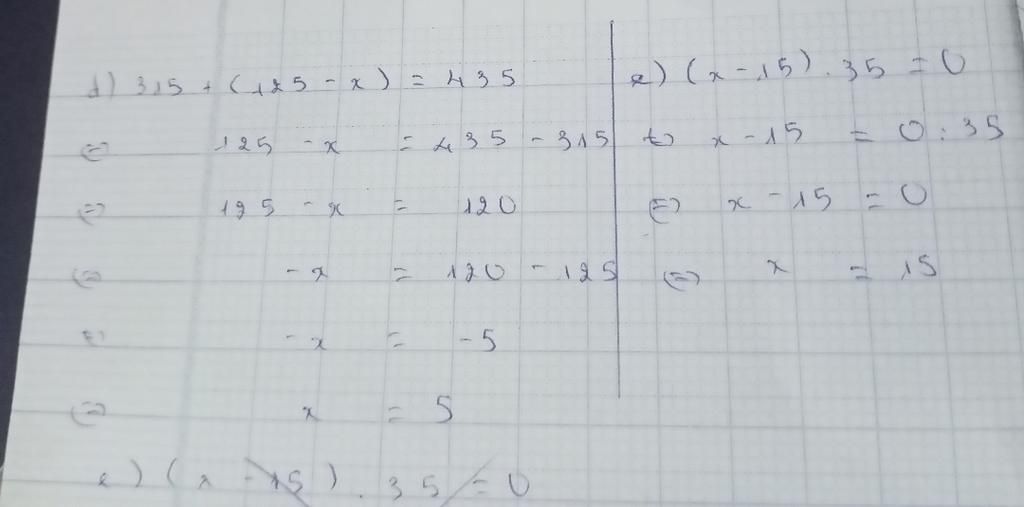 d) 315 + (125 - x) = 435
⇔ 125 - x = 435 - 315
⇔ 125 - x = 120
⇔ -x = 120 - 125
⇔ -x = -5
⇔ x = 5
e) (x - 15) . 35 = 0
e) (x - 15) . 35 = 0
⇔ x - 15 = 0 : 35
⇔ x - 15 = 0
⇔ x = 15